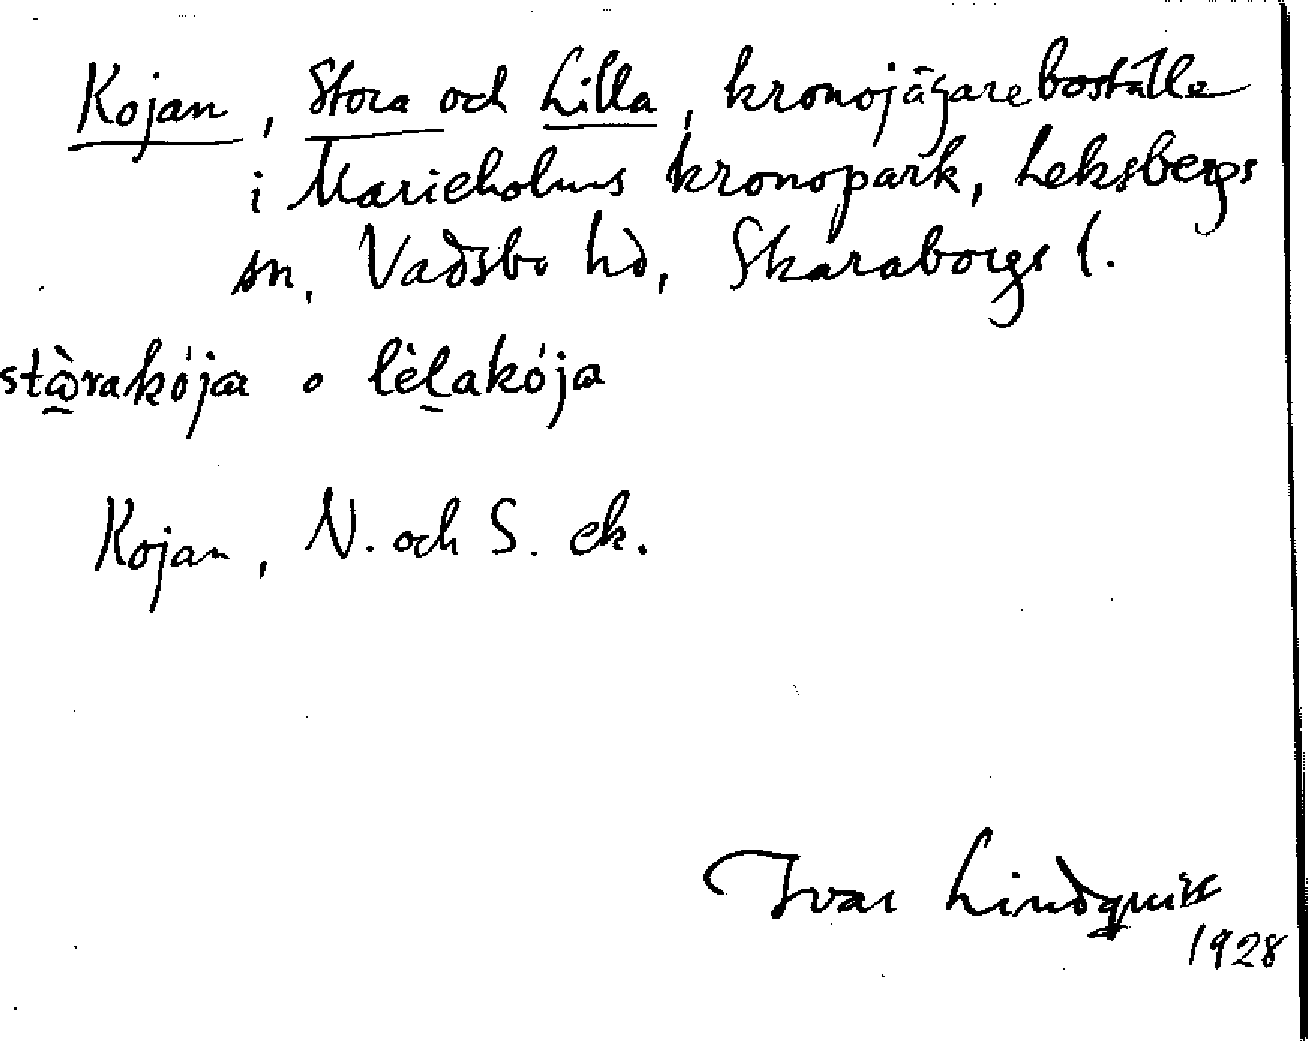 Kojan, Stora och Lilla, kronojägareboställe
i Marieholms kronopark, Leksbergs
sn, Vadsbo hd, Skaraborgs l.
stòrakója o lèlakója
Kojan, N. och S. ek.
Ivar Lindquist
1928